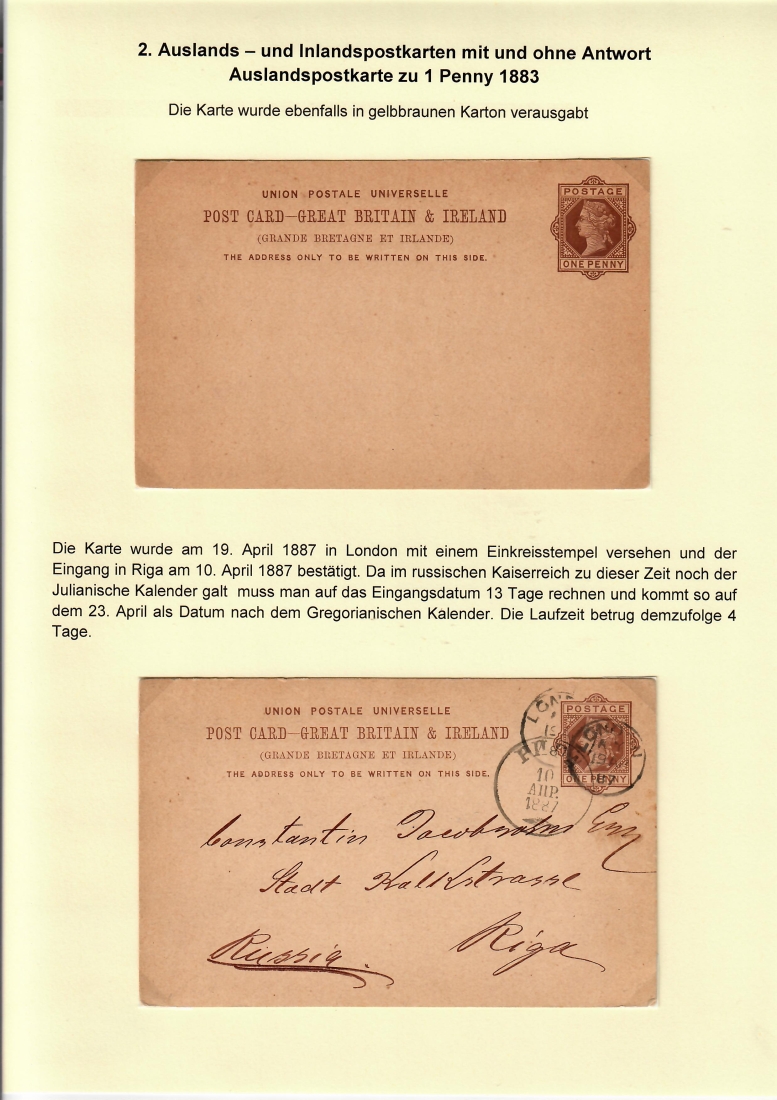 2. Auslands – und Inlandspostkarten mit und ohne Antwort
Auslandspostkarte zu 1 Penny 1883
Die Karte wurde ebenfalls in gelbbraunen Karton verausgabt
UNION POSTALE UNIVERSELLE
POST CARD—GREAT BRITAIN & IRELAND
(GRANDE BRETAGNE ET IRLANDE)
THE ADDRESS ONLY TO BE WRITTEN ON THIS SIDE.
POSTAGE
ONE PENNY
Die Karte wurde am 19. April 1887 in London mit einem Einkreisstempel versehen und der
Eingang in Riga am 10. April 1887 bestätigt. Da im russischen Kaiserreich zu dieser Zeit noch der
Julianische Kalender galt muss man auf das Eingangsdatum 13 Tage rechnen und kommt so auf
dem 23. April als Datum nach dem Gregorianischen Kalender. Die Laufzeit betrug demzufolge 4
Tage.
UNION POSTALE UNIVERSELLE
POST CARD—GREAT BRITAIN & IRELAND
(GRANDE BRETAGNE ET IRLANDE)
THE ADDRESS ONLY TO BE WRITTEN ON THIS SIDE.
POSTAGE
ONE PENNY
LONDON
87
10
АПР.
1887
Constantin Esq
Stadt Kalkstrasse
Riga
Russia